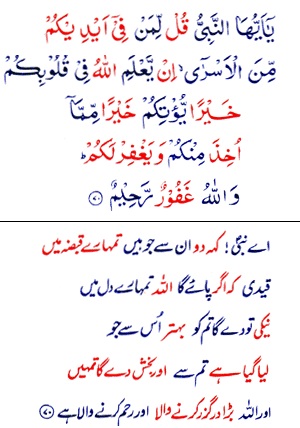 يٰۤاَيُّهَا النَّبِىُّ قُلْ لِّمَنْ فِىْۤ اَيْدِيْكُمْ
مِّنَ الْاَسْرٰٓى ۙ اِنْ يَّعْلَمِ اللّٰهُ فِىْ قُلُوْبِكُمْ
خَيْرًا يُّؤْتِكُمْ خَيْرًا مِّمَّاۤ
اُخِذَ مِنْكُمْ وَ يَغْفِرْ لَكُمْ ؕ
وَ اللّٰهُ غَفُوْرٌ رَّحِيْمٌ ﴿۷۰﴾
اے نبیؐ! کہہ دو ان سے جو ہیں تمہارے قبضہ میں
قیدی کہ اگر پائے گا اللہ تمہارے دل میں
نیکی تو دے گا تم کو بہتر اُس سے جو
لیا گیا ہے تم سے اور بخش دے گا تمہیں
اور اللہ بڑا درگزر کرنے والا اور رحم کرنے والا ہے ﴿۷۰﴾